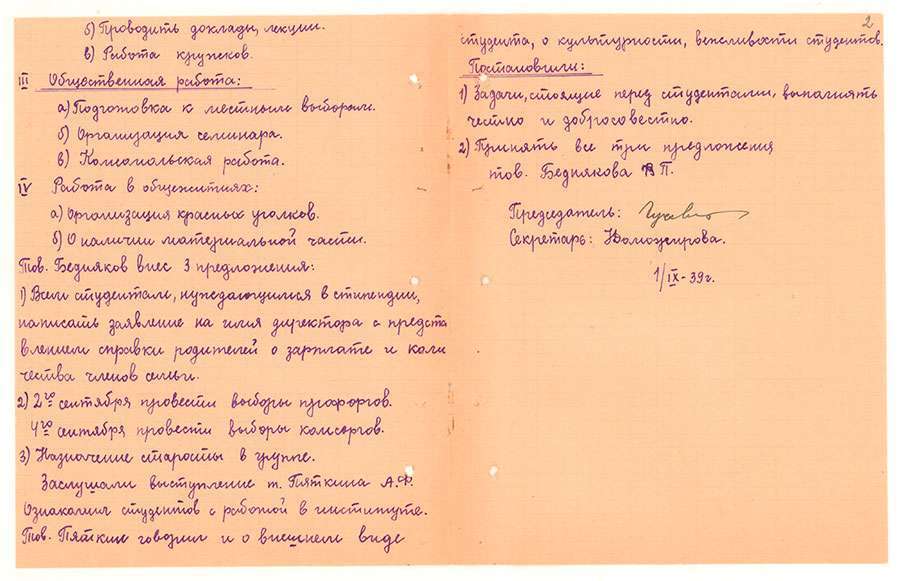 б) Проводить доклады, лекции.
в) Работа кружков.
III Общественная работа:
а) Подготовка к местным выборам.
б) Организация семинара.
в) Комсомольская работа.
IV Работа в общежитиях:
а) Организация красных уголков.
б) О наличии материальной части.
Тов. Бедняков внес 3 предложения:
1) Всем студентам, нуждающимся в стипендии,
написать заявление на имя директора с предста
влением справки родителей о зарплате и коли
чества членов семьи.
2) 2го сентября провести выборы профоргов.
4го сентября провести выборы комсоргов.
3) Назначение старосты в группе.
Заслушали выступление т. Пяткина А.Ф.
Ознакомил студентов с работой в институте.
Тов. Пяткин говорил и о внешнем виде
2
студента, о культурности, вежливости студентов.
Постановили:
1) Задачи, стоящие перед студентами, выполнять
честно и добросовестно.
2) Принять все три предложения
тов. Беднякова В П.
Председатель:
Секретарь:
1/IX-39г.